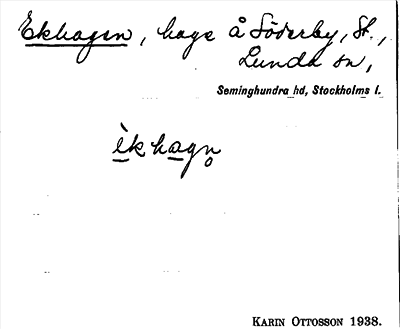 Ekhagen, hage å Söderby, St.,
Lunda sn,
Seminghundra hd, Stockholms l.
è̲kha̲gn̥
KARIN OTTOSSON 1938.